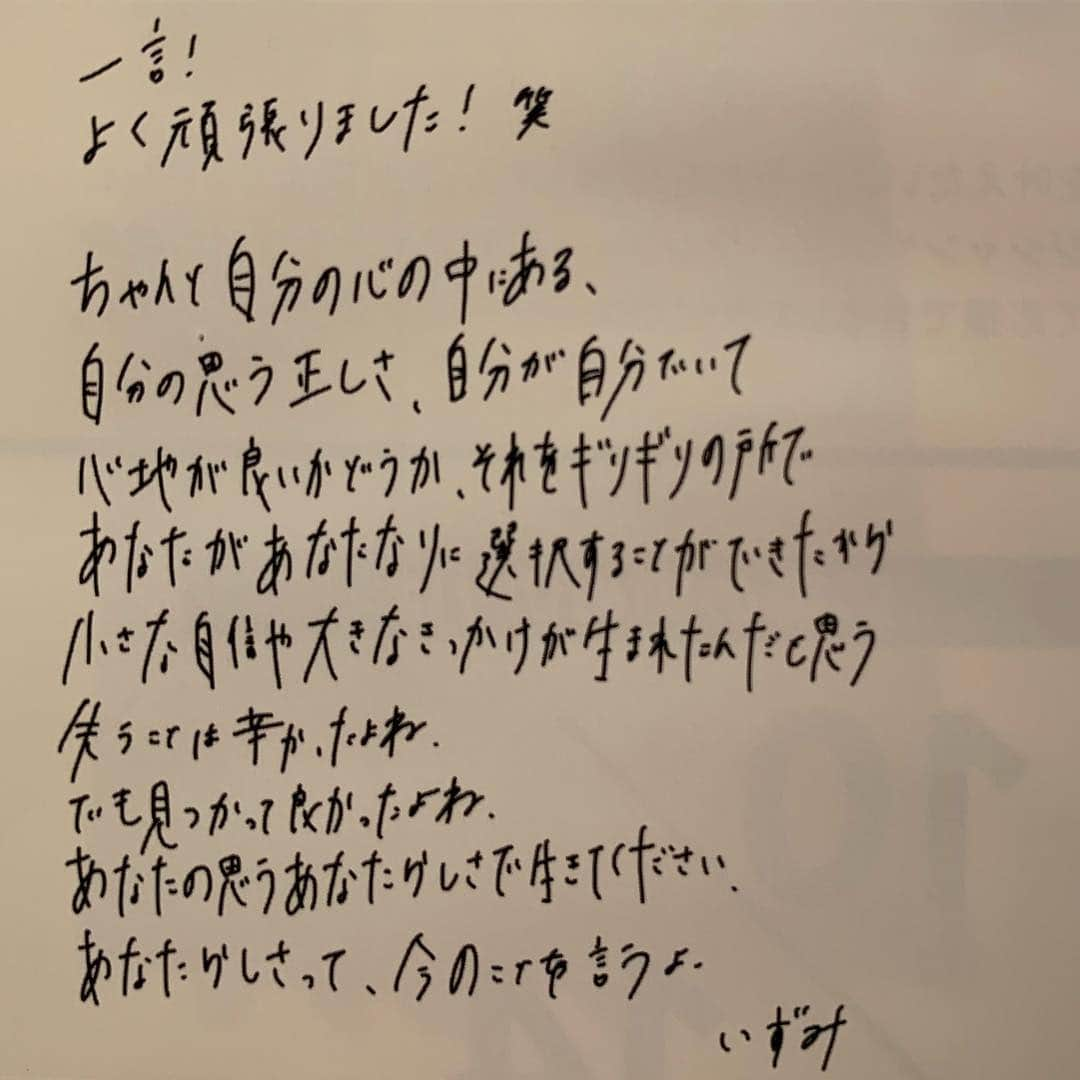 一言!
よく頑張りました! 笑
ちゃんと自分の心の中にある、
自分の思う正しさ、自分が自分でいて
心地が良いかどうか、それをギリギリの所で
あなたがあなたなりに選択することができたから
小さな自信や大きなきっかけが生まれたんだと思う
失うことは辛かったよね.
でも見つかって良かったよね.
あなたの思うあなたらしさで生きてください.
あなたらしさって、今のことを言うよ.
いずみ